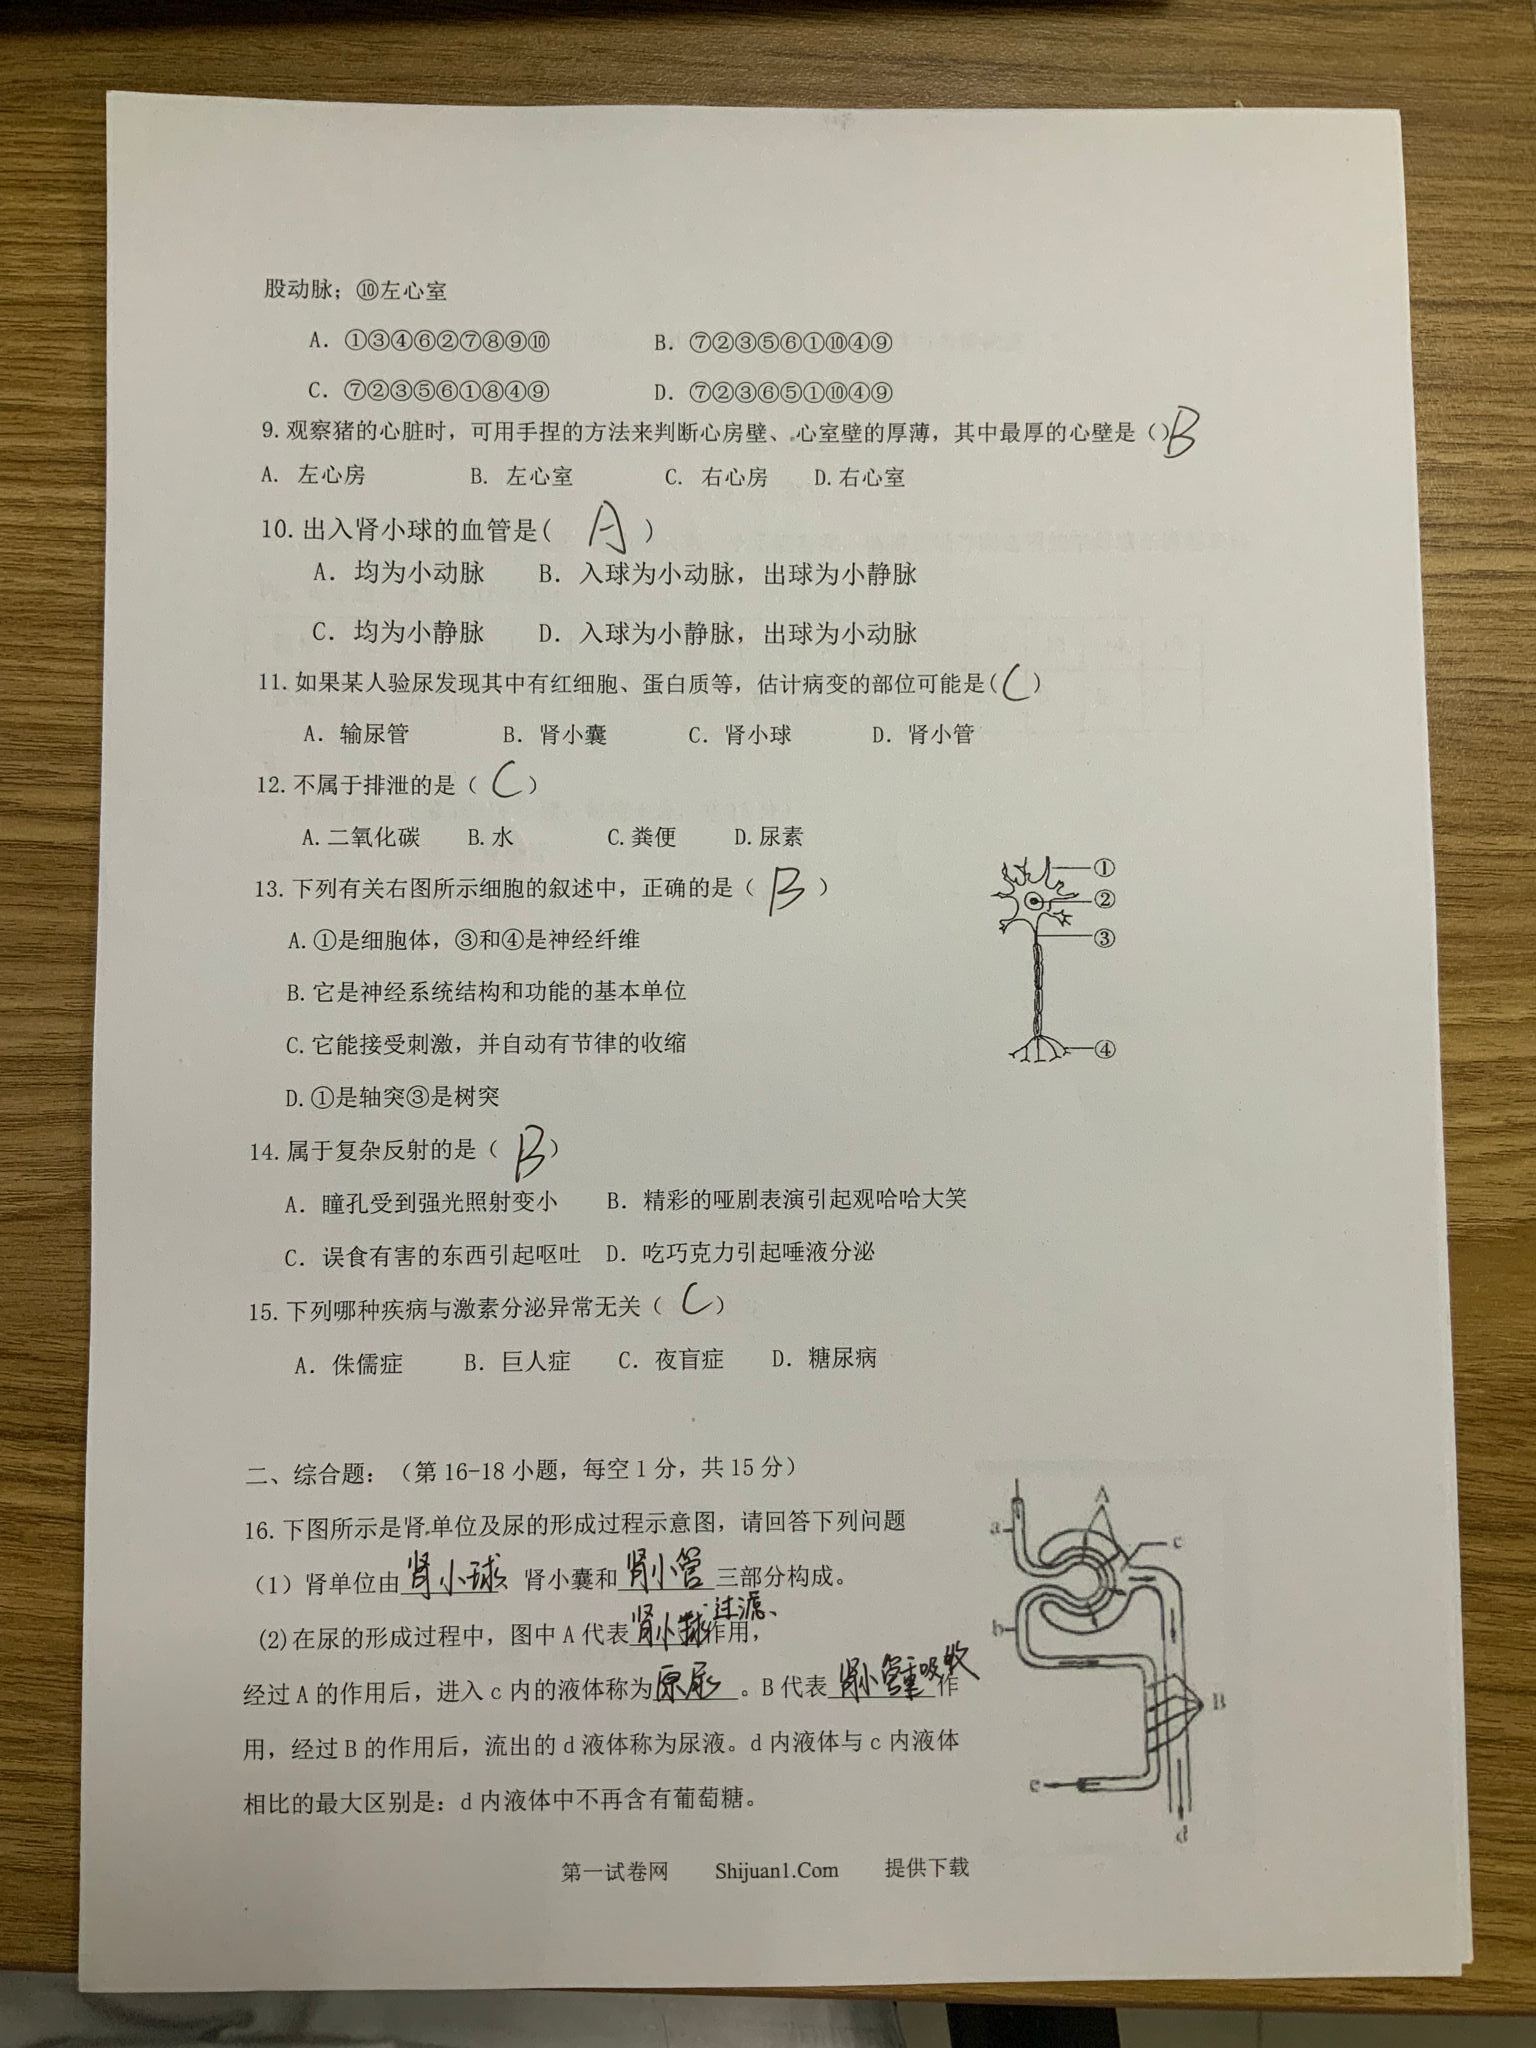 股动脉；⑩左心室
A. ①③④⑥②⑦⑧⑨⑩ B. ⑦②③⑤⑥①⑩④⑨
C. ⑦②③⑤⑥①⑧④⑨ D. ⑦②③⑥⑤①⑩④⑨
9.观察猪的心脏时，可用手捏的方法来判断心房壁、心室壁的厚薄，其中最厚的心壁是（）B
A. 左心房 B. 左心室 C. 右心房 D.右心室
10.出入肾小球的血管是( A )
A. 均为小动脉 B. 入球为小动脉，出球为小静脉
C. 均为小静脉 D. 入球为小静脉，出球为小动脉
11.如果某人验尿发现其中有红细胞、蛋白质等，估计病变的部位可能是( C )
A. 输尿管 B. 肾小囊 C. 肾小球 D. 肾小管
12.不属于排泄的是（ C ）
A.二氧化碳 B.水 C.粪便 D.尿素
13.下列有关右图所示细胞的叙述中，正确的是（ B ）
①
②
③
④
A.①是细胞体，③和④是神经纤维
B.它是神经系统结构和功能的基本单位
C.它能接受刺激，并自动有节律的收缩
D.①是轴突③是树突
14.属于复杂反射的是（ B ）
A. 瞳孔受到强光照射变小 B. 精彩的哑剧表演引起观哈哈大笑
C. 误食有害的东西引起呕吐 D. 吃巧克力引起唾液分泌
15.下列哪种疾病与激素分泌异常无关（ C ）
A. 侏儒症 B. 巨人症 C. 夜盲症 D. 糖尿病
二、综合题：（第16-18小题，每空1分，共15分）
16.下图所示是肾单位及尿的形成过程示意图，请回答下列问题
（1）肾单位由肾小球 肾小囊和肾小管三部分构成。
(2)在尿的形成过程中，图中A代表肾小球过滤、作用，
经过A的作用后，进入c内的液体称为原尿。B代表肾小管重吸收作
用，经过B的作用后，流出的d液体称为尿液。d内液体与c内液体
相比的最大区别是：d内液体中不再含有葡萄糖。
A
a
c
b
B
e
d
第一试卷网 Shijuan1.Com 提供下载